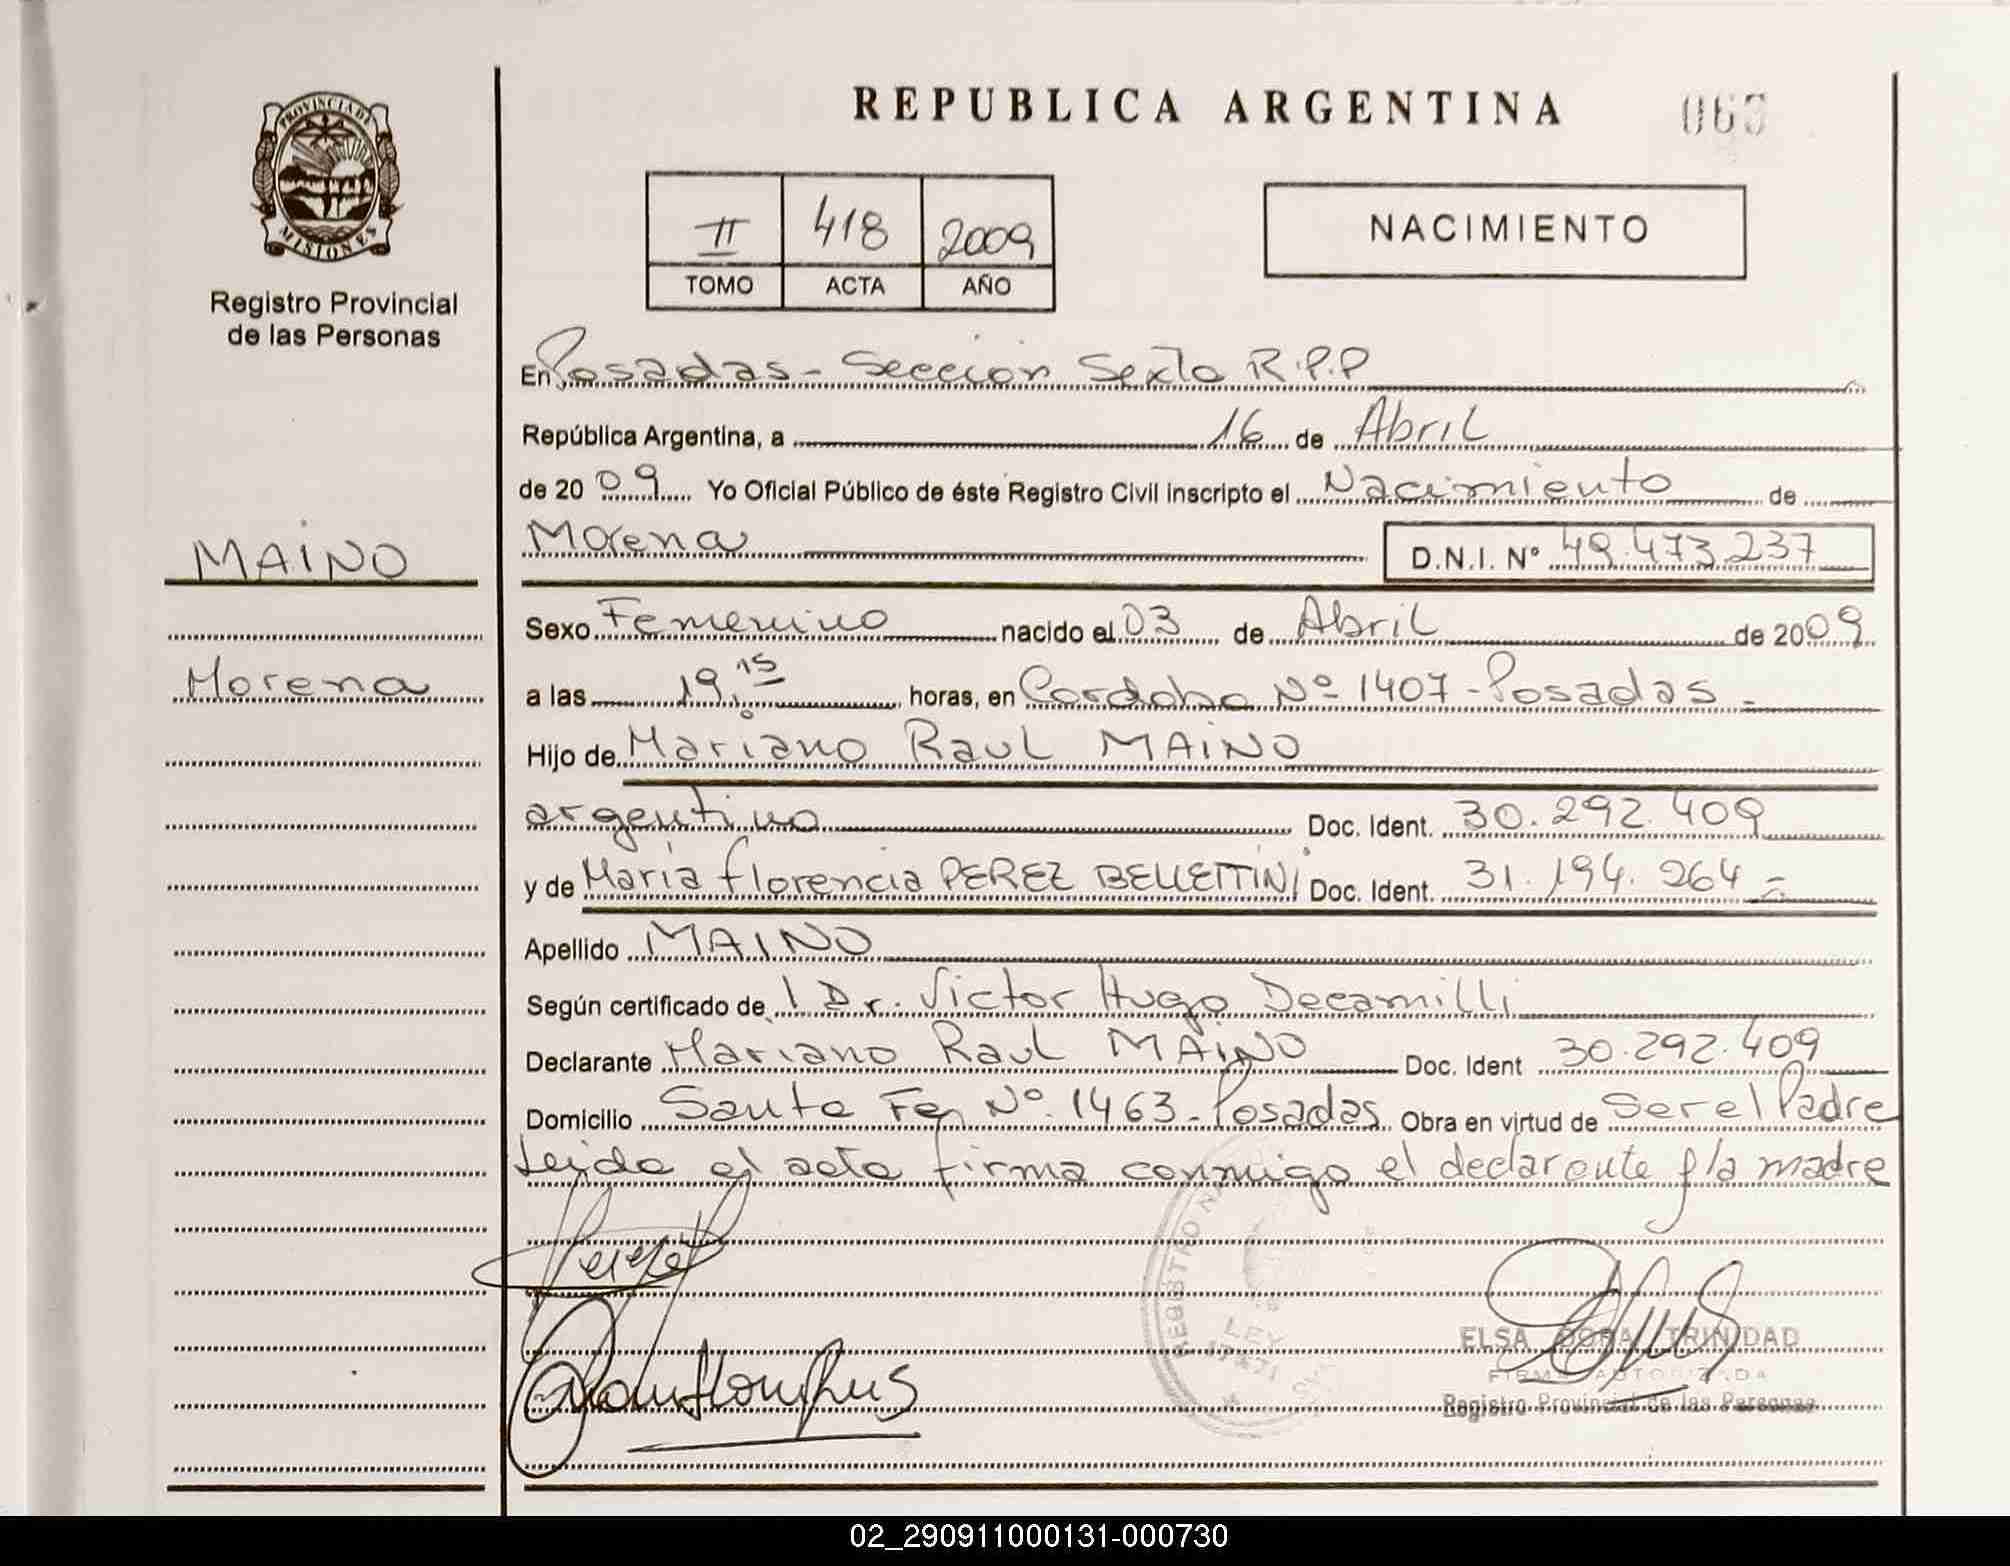 REPUBLICA ARGENTINA
PROVINCIA DE
MISIONES
Registro Provincial
de las Personas
II 418 2009
TOMO ACTA AÑO
NACIMIENTO
En Posadas - Sección Sexta R.P.P
República Argentina, a 16 de Abril
de 2009 Yo Oficial Público de éste Registro Civil inscripto el Nacimiento de
MAINO
Morena D.N.I. Nº 49.473.237
Sexo Femenino nacido el 03 de Abril de 2009
Morena
a las 19,15 horas, en Cordoba Nº 1407 - Posadas -
Hijo de Mariano Raul MAINO
argentino Doc. Ident. 30.292.409
y de María Florencia PEREZ BELLETTINI Doc. Ident. 31.194.264 =
Apellido MAINO
Según certificado de l Dr. Victor Hugo Decamilli
Declarante Mariano Raul MAINO Doc. Ident 30.292.409
Domicilio Santa Fe, Nº 1463 - Posadas Obra en virtud de Ser el Padre
Leida el acta firma conmigo el declarante y la madre
REGISTRO
LEY
17671
ELSA DORA TRINIDAD
FIRMA AUTORIZADA
Registro Provincial de las Personas
02_290911000131-000730